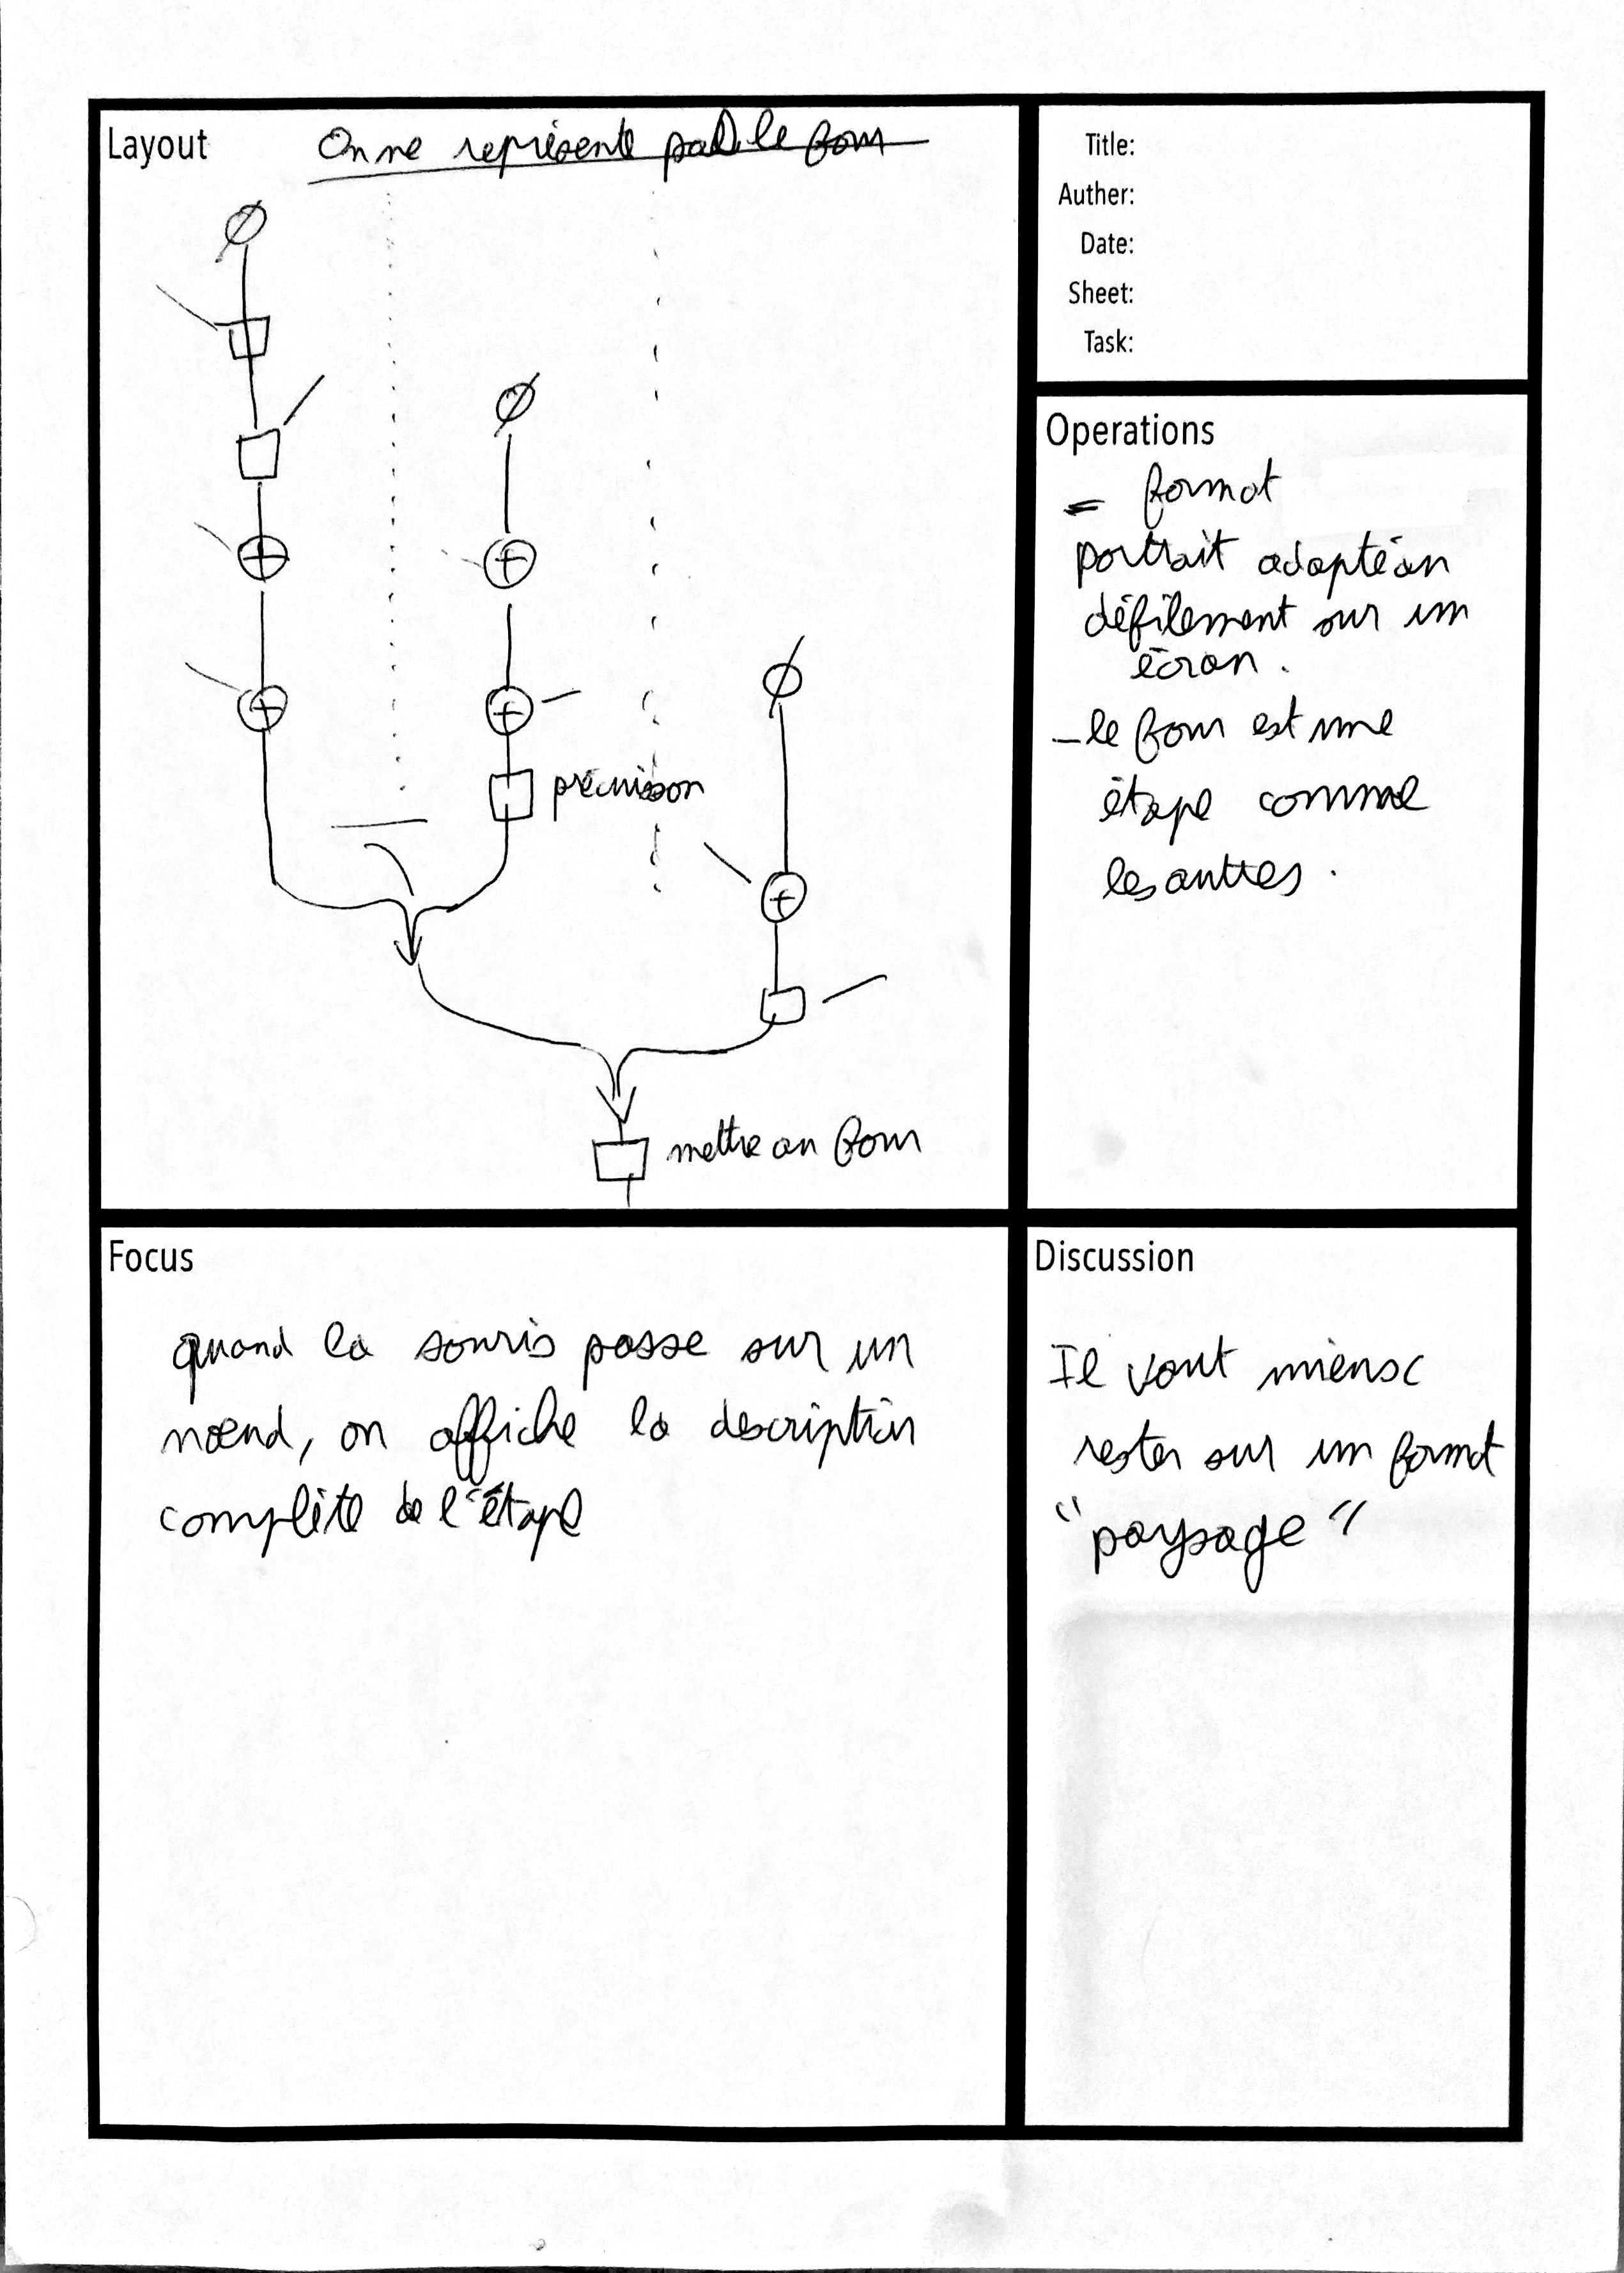 Layout
On ne représente pas le four
précuisson
mettre au four
Title:
Auther:
Date:
Sheet:
Task:
Operations
- format
portrait adapté au
défilement sur un
écran.
- le four est une
étape comme
les autres.
Focus
quand la souris passe sur un
nœud, on affiche la description
complète de l'étape
Discussion
Il vaut mieux
rester sur un format
"paysage"